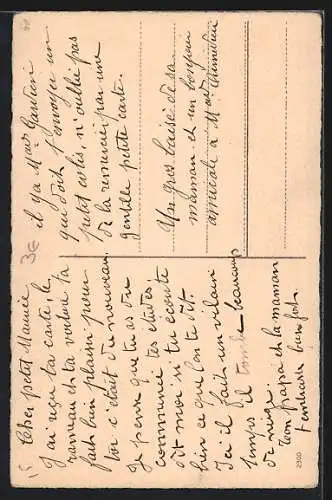 Cher petit Maurice
J'ai reçu ta carte, le
rameau et ta voiture t'a
fait bien plaisir pour
toi c'était du nouveau.
Je pense que tu as du
commencé tes études,
dit moi si tu écoute
bien ce que l'on te dit.
Ici il fait un vilain
temps il tombe beaucoup
de neige.
Ton papa et la maman
t'embrasse bien fort.
il y a Mme Gautier
qui doit t'envoyer un
petit colis, n'oublie pas
de la remercier par une
gentille petite carte.
Un gros baisé de sa
maman et un bonjour
amicale à Mme
3€
2300